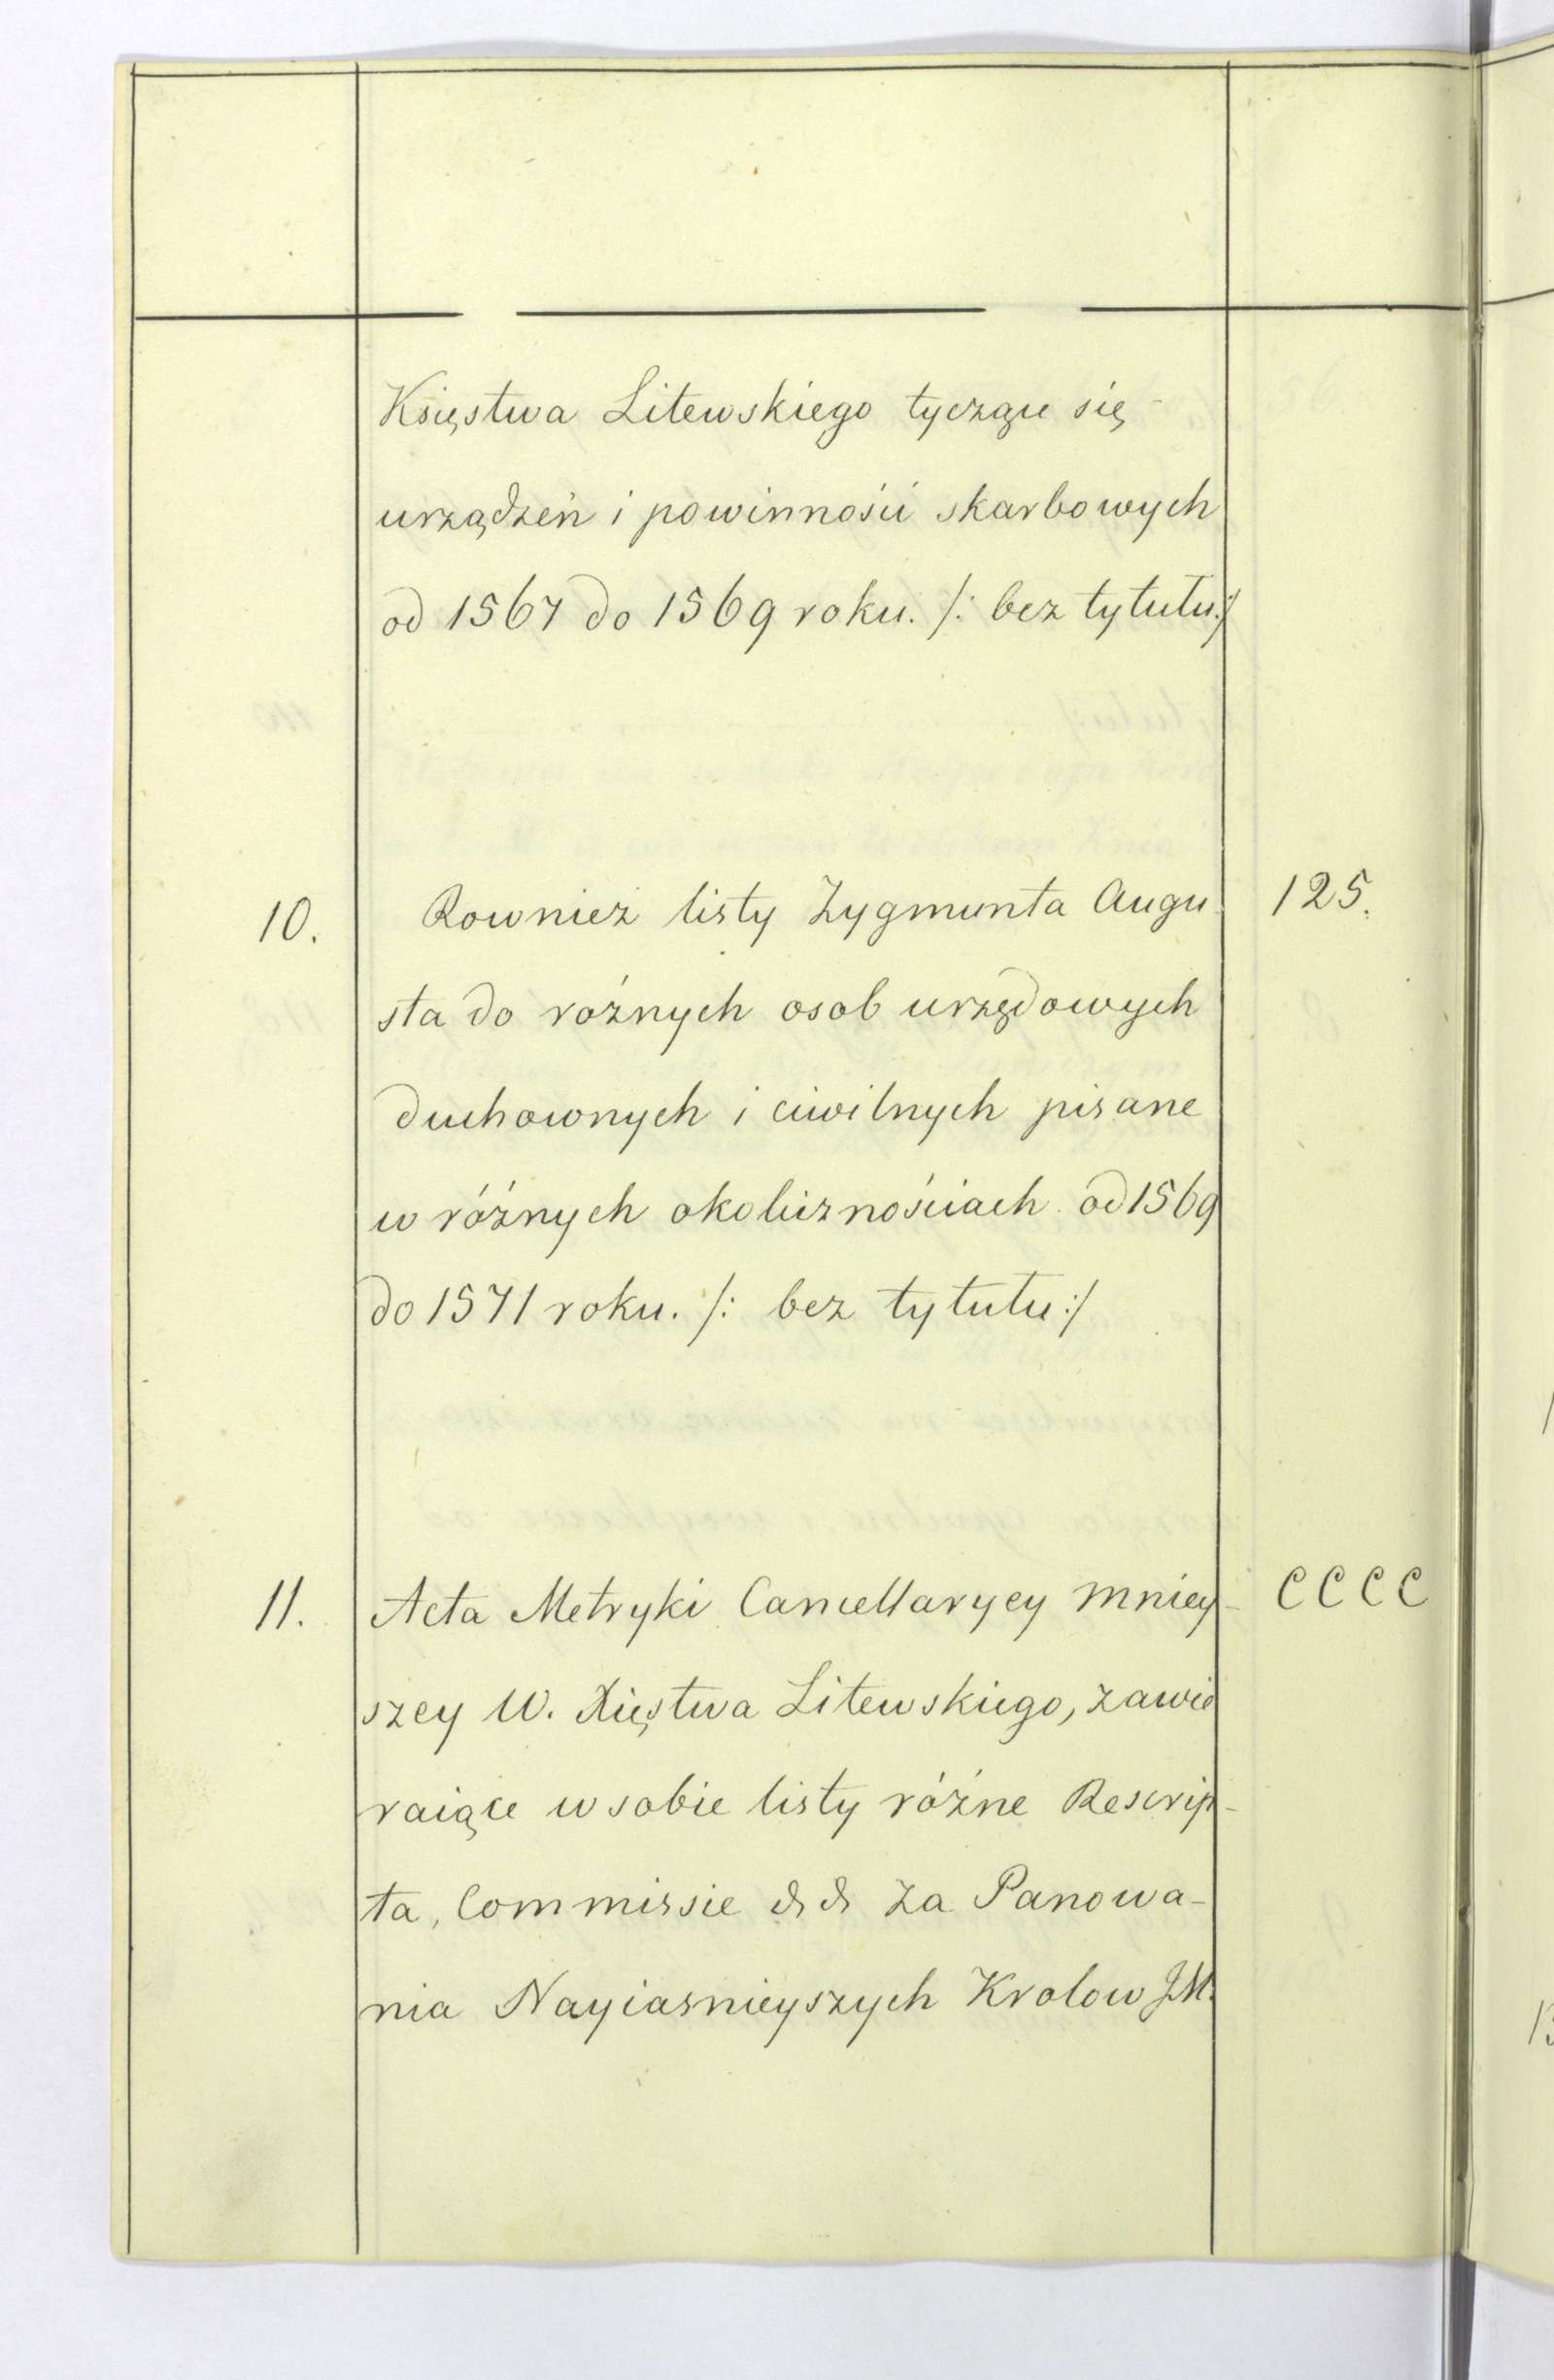 Księstwa Litewskiego tyczące się
urządzeń i powinności skarbowych
od 1567 do 1569 roku. /: bez tytułu:/
10. Rownież listy Zygmunta Augu 125.
sta do rożnych osob urzędowych
duchownych i ciwilnych pisane
w różnych okolicznościach od 1569
do 1571 roku. /: bez tytułu:/
11. Acta Metryki Cancellaryey mniey- CCCC
szey W. Xięstwa Litewskiego, zawie
raiące w sobie listy różne Rescrip-
ta, Commissie & & Za Panowa-
nia Nayiasnieyszych Krolow JM.